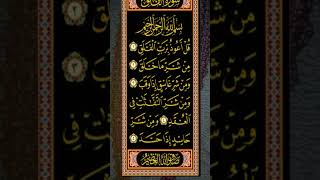 سُورَةُ الْفَلَقِ
بِسْمِ اللَّهِ الرَّحْمَٰنِ الرَّحِيمِ
قُلْ أَعُوذُ بِرَبِّ الْفَلَقِ
مِنْ شَرِّ مَا خَلَقَ
وَمِنْ شَرِّ غَاسِقٍ إِذَا وَقَبَ
وَمِنْ شَرِّ النَّفَّٰثَٰتِ فِي
الْعُقَدِ وَمِنْ شَرِّ
حَاسِدٍ إِذَا حَسَدَ
صدق الله العظيم